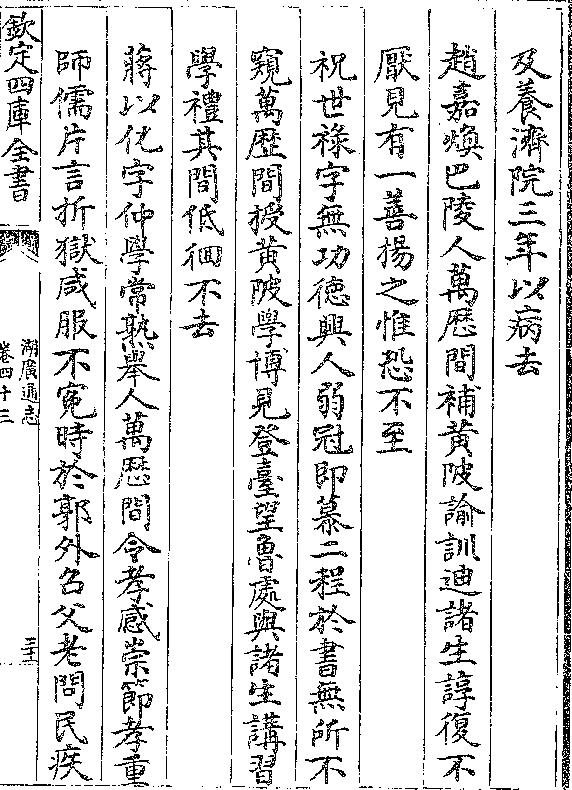 及養濟院三年以病去
趙嘉煥巴陵人萬歴間補黄陂諭訓迪諸生諄復不
厭見有一善揚之惟恐不至
祝世祿字無功徳興人弱冠即慕二程於書無所不
窺萬歴間授黄陂學博見登臺望魯處與諸生講習
學禮其間低徊不去
蔣以化字仲學常熟舉人萬歴間令孝感崇節孝重
師儒片言折獄咸服不寃時於郭外召父老問民疾
欽定四庫全書
湖廣通志
卷四十三